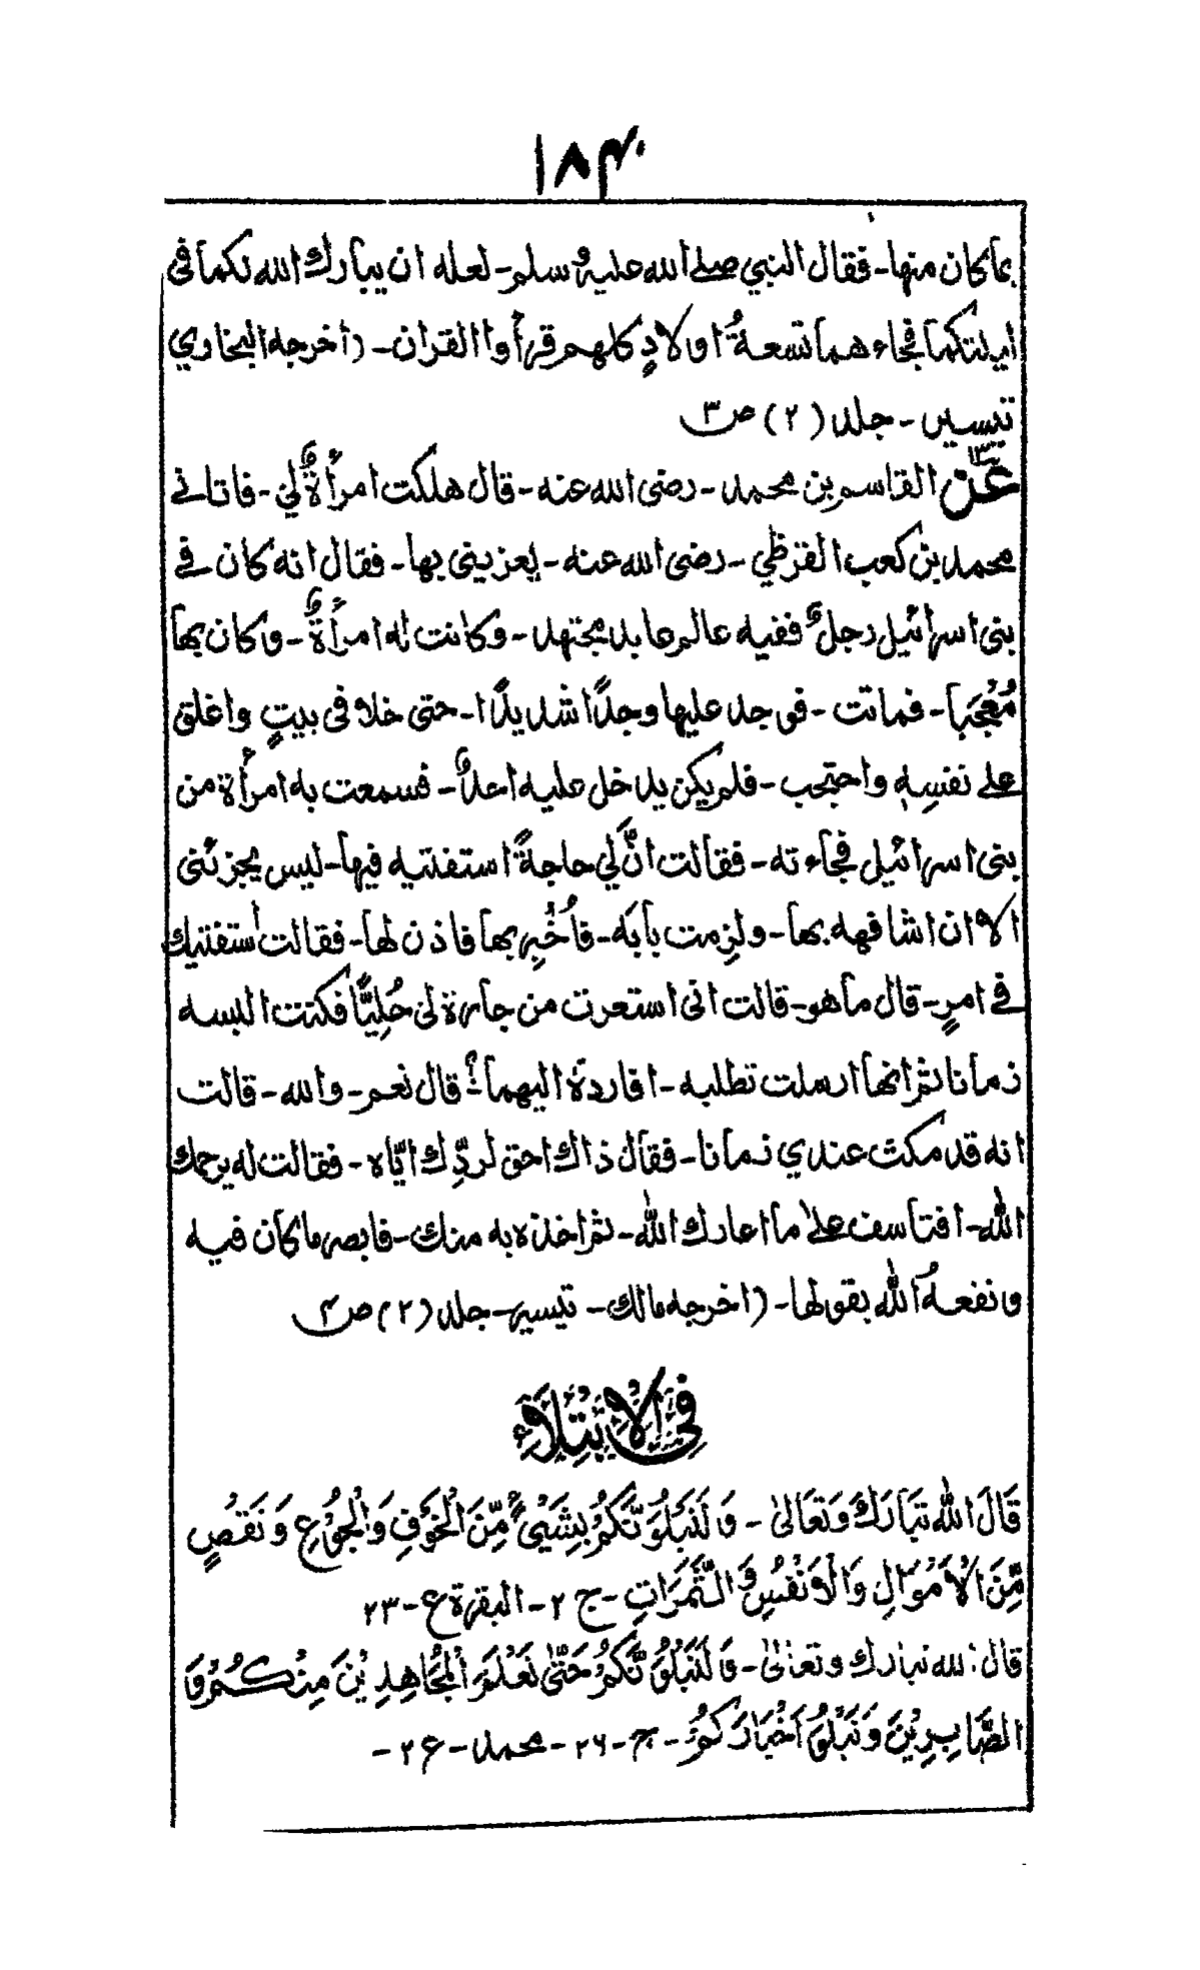 ۱۸۴
بما كان منها۔ فقال النبي صلے الله عليه وسلم۔ لعله ان يبارك الله لكما فى
ليلتكما فجاء هما تسعةُ اولادٍ كلهم قرأوا القران۔ (اخرجه البخاري
تيسير۔ جلد (۲) ص۳
عن القاسم بن محمد۔ رضى الله عنه۔ قال هلكت امرأةٌ لي۔ فاتانے
محمد بن كعب القرظي۔ رضى الله عنه۔ يعزينى بها۔ فقال انه كان فے
بنى اسرائيل رجلٌ فقيه عالم عابد مجتهد۔ وكانت له امرأةٌ۔ وكان بها
مُعْجَبا۔ فماتت۔ فوجد عليها وجدًا شديدًا۔ حتى خلا فى بيتٍ واغلق
علے نفسِهٖ واحتجب۔ فلم يكن يدخل عليه احدٌ۔ فسمعت به امرأة من
بنى اسرائيل فجاءته۔ فقالت انَّ لي حاجةً استفتيه فيها۔ ليس يجزئنى
الا ان اشافهه بها۔ ولزِمت بابَه۔ فاُخْبِر بها فاذن لها۔ فقالت أستفتيك
فے امرٍ۔ قال ما هو۔ قالت انى استعرت من جارة لى حُلِيًّا فكنت البسه
زمانا ثم انها ارسلت تطلبه۔ افاردهٗ اليهما؟ قال نعم۔ والله۔ قالت
انه قد مكث عندي زمانا۔ فقال ذاك احق لردِّك ايّاه۔ فقالت له يرحمك
الله۔ افتاسف علےٰ ما اعارك الله۔ ثم اخذه به منك۔ فابصر ما كان فيه
ونفعهُ الله بقولها۔ (اخرجه مالك۔ تيسير۔ جلد (۲) ص۴
فِى الْاِبْتِلَآءِ
قَالَ الله تَبَارَكَ وَتَعَالىٰ۔ وَلَنَبْلُوَنَّكُمْ بِشَيْىءٍ مِّنَ الْخَوْفِ وَالْجُوْعِ وَنَقْصٍ
مِّنَ الْاَمْوَالِ وَالْاَنْفُسِ وَالثَّمَرَاتِ۔ ج ۲۔ البقرة ع۔ ۲۳
قال الله تبارك وتعالىٰ۔ وَلَنَبْلُوَنَّكُمْ حَتّٰى نَعْلَمَ الْمُجَاهِدِيْنَ مِنْكُمْ وَ
الصَّابِرِيْنَ وَنَبْلُوَ اَخْبَارَكُمْ۔ ج۔ ۲۶۔ محمد۔ ع ۲۔